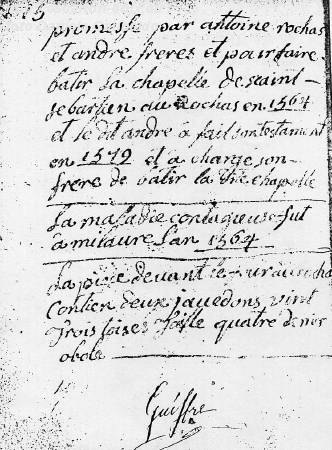 promesse par antoine rochas
et andre freres et pour faire
batir la chapelle de saint
sebastien au Rochas en 1564
et le dit andre a fait son testament
en 1579 et a charge son
frere de batir la dite chapelle
La maladie contagieuse fut
a mitaure L'an 1564
La piece devant le
Contien deux
trois toises taille quatre deniers
obole
Guiffre